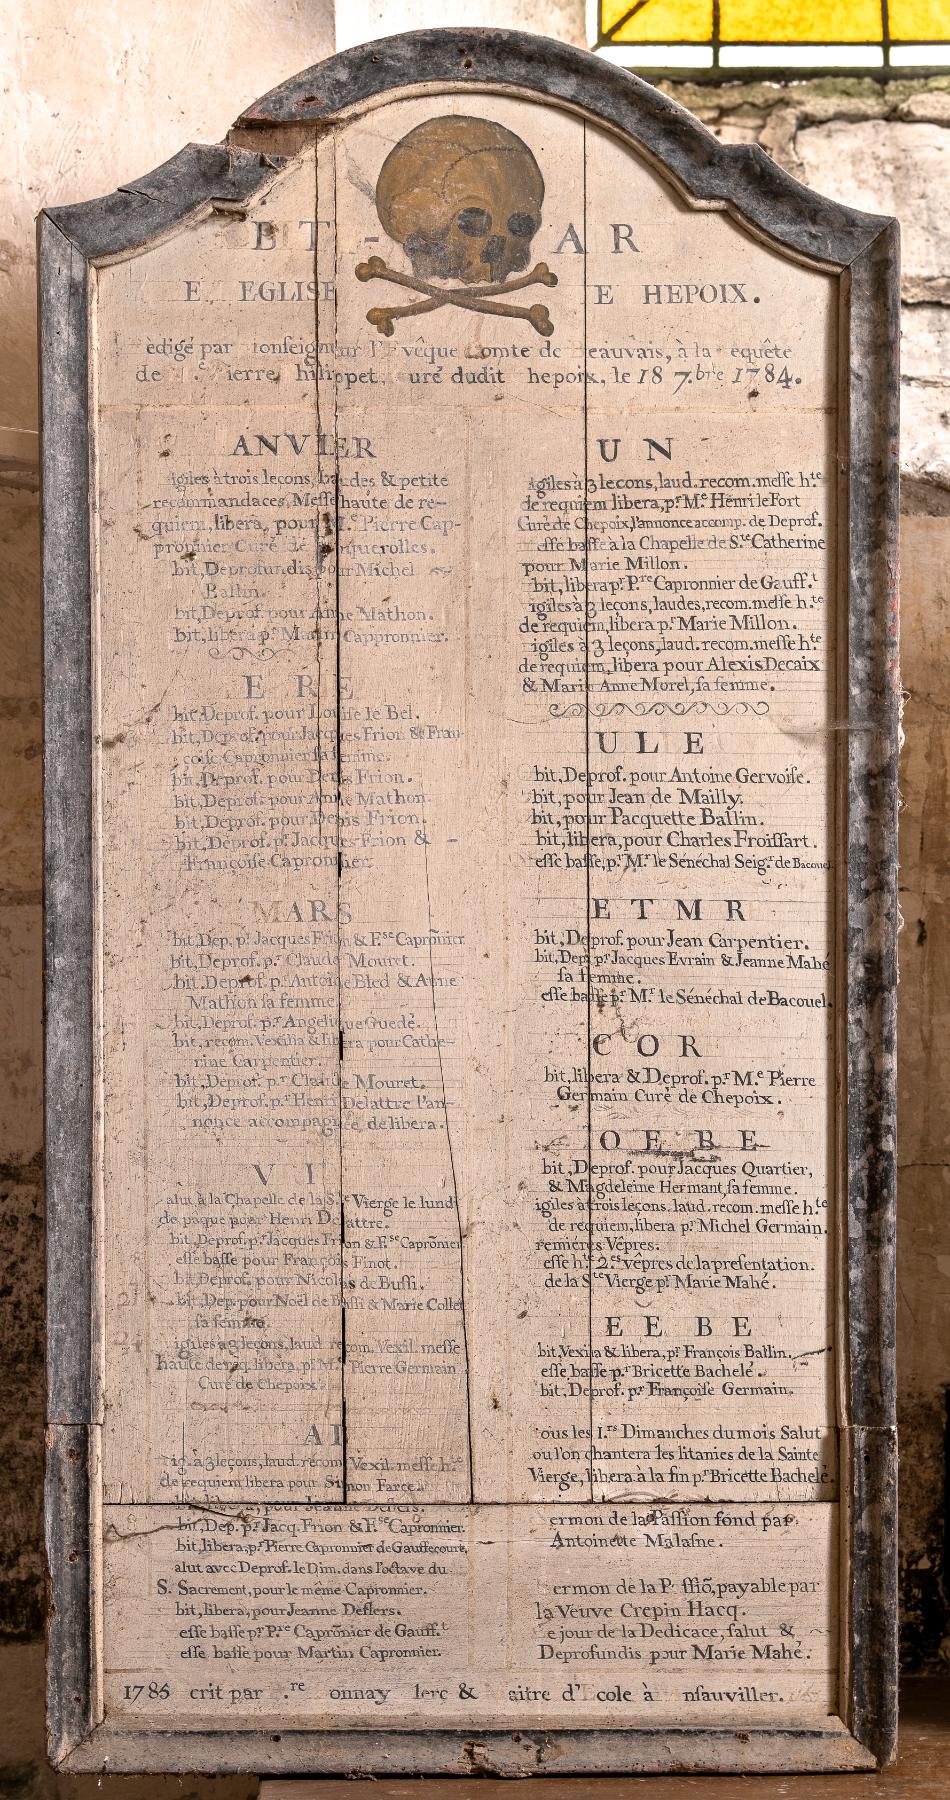 BIT - AR
E EGLISE E HEPOIX.
èdigé par onseigneur l'Evêque omte de eauvais, à la equête
de .e ierre hilippet, uré dudit hepoix, le 18 7.bre 1784.
ANVIER
igiles à trois leçons, laudes & petite
recommandaces, Messe haute de re-
quiem, libera, pour M.e Pierre Cap-
pronnier Curé de querolles.
bit, Deprofundis pour Michel
Ballin.
bit, Deprof. pour Anne Mathon.
bit, libera p.r Martin Cappronnier.
E R E
bit, Deprof. pour Louise le Bel.
bit, Deprof. pour Jacques Frion & Fran-
çoise Capronnier sa femme.
bit, Deprof. pour Denis Frion.
bit, Deprof. pour Anne Mathon.
bit, Deprof. pour Denis Frion.
bit, Deprof. p.r Jacques Frion & -
Françoise Capronnier.
MARS
bit, Dep. p.r Jacques Frion & F.se Caproñier
bit, Deprof. p.r Claude Mouret.
bit, Deprof. p.r Antoine Bled & Anne
Mathon sa femme.
bit, Deprof. p.r Angelique Guedé.
bit, recom. Vexilla & libera pour Cathe-
rine Carpentier.
bit, Deprof. p.r Claude Mouret.
bit, Deprof. p.r Henri Delattre l'an-
nonce accompagnée de libera.
V I
alut à la Chapelle de la S.te Vierge le lundi
de paque pour Henri Delattre.
bit, Deprof. p.r Jacques Frion & F.se Caproñier
esse basse pour François Finot.
bit, Deprof. pour Nicolas de Bussi.
bit, Dep. pour Noël de Bussi & Marie Collet
sa femme.
igiles à 3 leçons, laud. recom. Vexil. messe
haute de req. libera, p.r M.e Pierre Germain
Curé de Chepoix.
AI
ig. à 3 leçons, laud. recom. Vexil. messe h.te
de requiem libera pour Simon Farce.
bit, libera, pour Jeanne Deflers.
bit, Dep. p.r Jacq. Frion & F.se Capronnier.
bit, libera, p.r Pierre Capronnier de Gauffecourt,
alut avec Deprof. le Dim. dans l'octave du
S. Sacrement, pour le même Capronnier.
bit, libera, pour Jeanne Deflers.
esse basse p.r P.re Caproñier de Gauff.t
esse basse pour Martin Capronnier.
U N
igiles à 3 lecons, laud. recom. messe h.te
de requiem libera, p.r M.e Henri le Fort
Curé de Chepoix, l'annonce accomp. de Deprof.
esse basse à la Chapelle de S.te Catherine
pour Marie Millon.
bit, libera p.r P.re Capronnier de Gauff.t
igiles à 3 leçons, laudes, recom. messe h.te
de requiem, libera p.r Marie Millon.
igiles à 3 leçons, laud. recom. messe h.te
de requiem, libera pour Alexis Decaix
& Marie Anne Morel, sa femme.
U L E
bit, Deprof. pour Antoine Gervoise.
bit, pour Jean de Mailly.
bit, pour Pacquette Ballin.
bit, libera, pour Charles Froissart.
esse basse, p.r M.r le Sénéchal Seig.r de Bacouel
E T M R
bit, Deprof. pour Jean Carpentier.
bit, Dep. p.r Jacques Evrain & Jeanne Mahé
sa femme.
esse basse p.r M.r le Sénéchal de Bacouel.
C O R
bit, libera & Deprof. p.r M.e Pierre
Germain Curé de Chepoix.
O E B E
bit, Deprof. pour Jacques Quartier,
& Magdeleine Hermant, sa femme.
igiles à trois leçons, laud. recom. messe h.te
de requiem, libera p.r Michel Germain.
remières Vêpres.
esse h.te 2.es vêpres de la presentation.
de la S.te Vierge p.r Marie Mahé.
E E B E
bit, Vexilla & libera, p.r François Ballin.
esse basse p.r Bricette Bachelé.
bit, Deprof. p.r Françoise Germain.
ous les 1.rs Dimanches du mois Salut
ou l'on chantera les litanies de la Sainte
Vierge, libera à la fin p.r Bricette Bachelé.
ermon de la Passion fond par
Antoinette Malasne.
ermon de la P ssiõ, payable par
la Veuve Crepin Hacq.
e jour de la Dedicace, salut &
Deprofundis pour Marie Mahé.
1785 crit par .re onnay lerc & aitre d' cole à nsauviller.